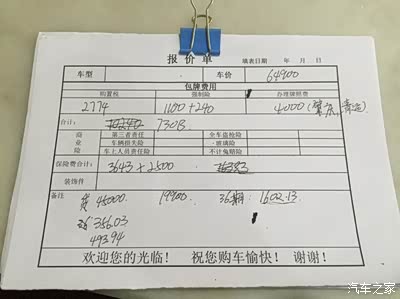 报价单 填表日期 年 月 日
车型 车价 64900
包牌费用
购置税 强制险 办理牌照费
2774 1100+240 4000(肇庆,清远)
合计: 7308
商业险 第三者责任 全车盗抢险
车辆损失险 玻璃险
车上人员责任险 不计免赔险
保险费合计: 3643+2500
装饰件
备注 贷45000 19900 36期 1602.13
356.03
493.94
欢迎您的光临! 祝您购车愉快! 谢谢!
汽车之家